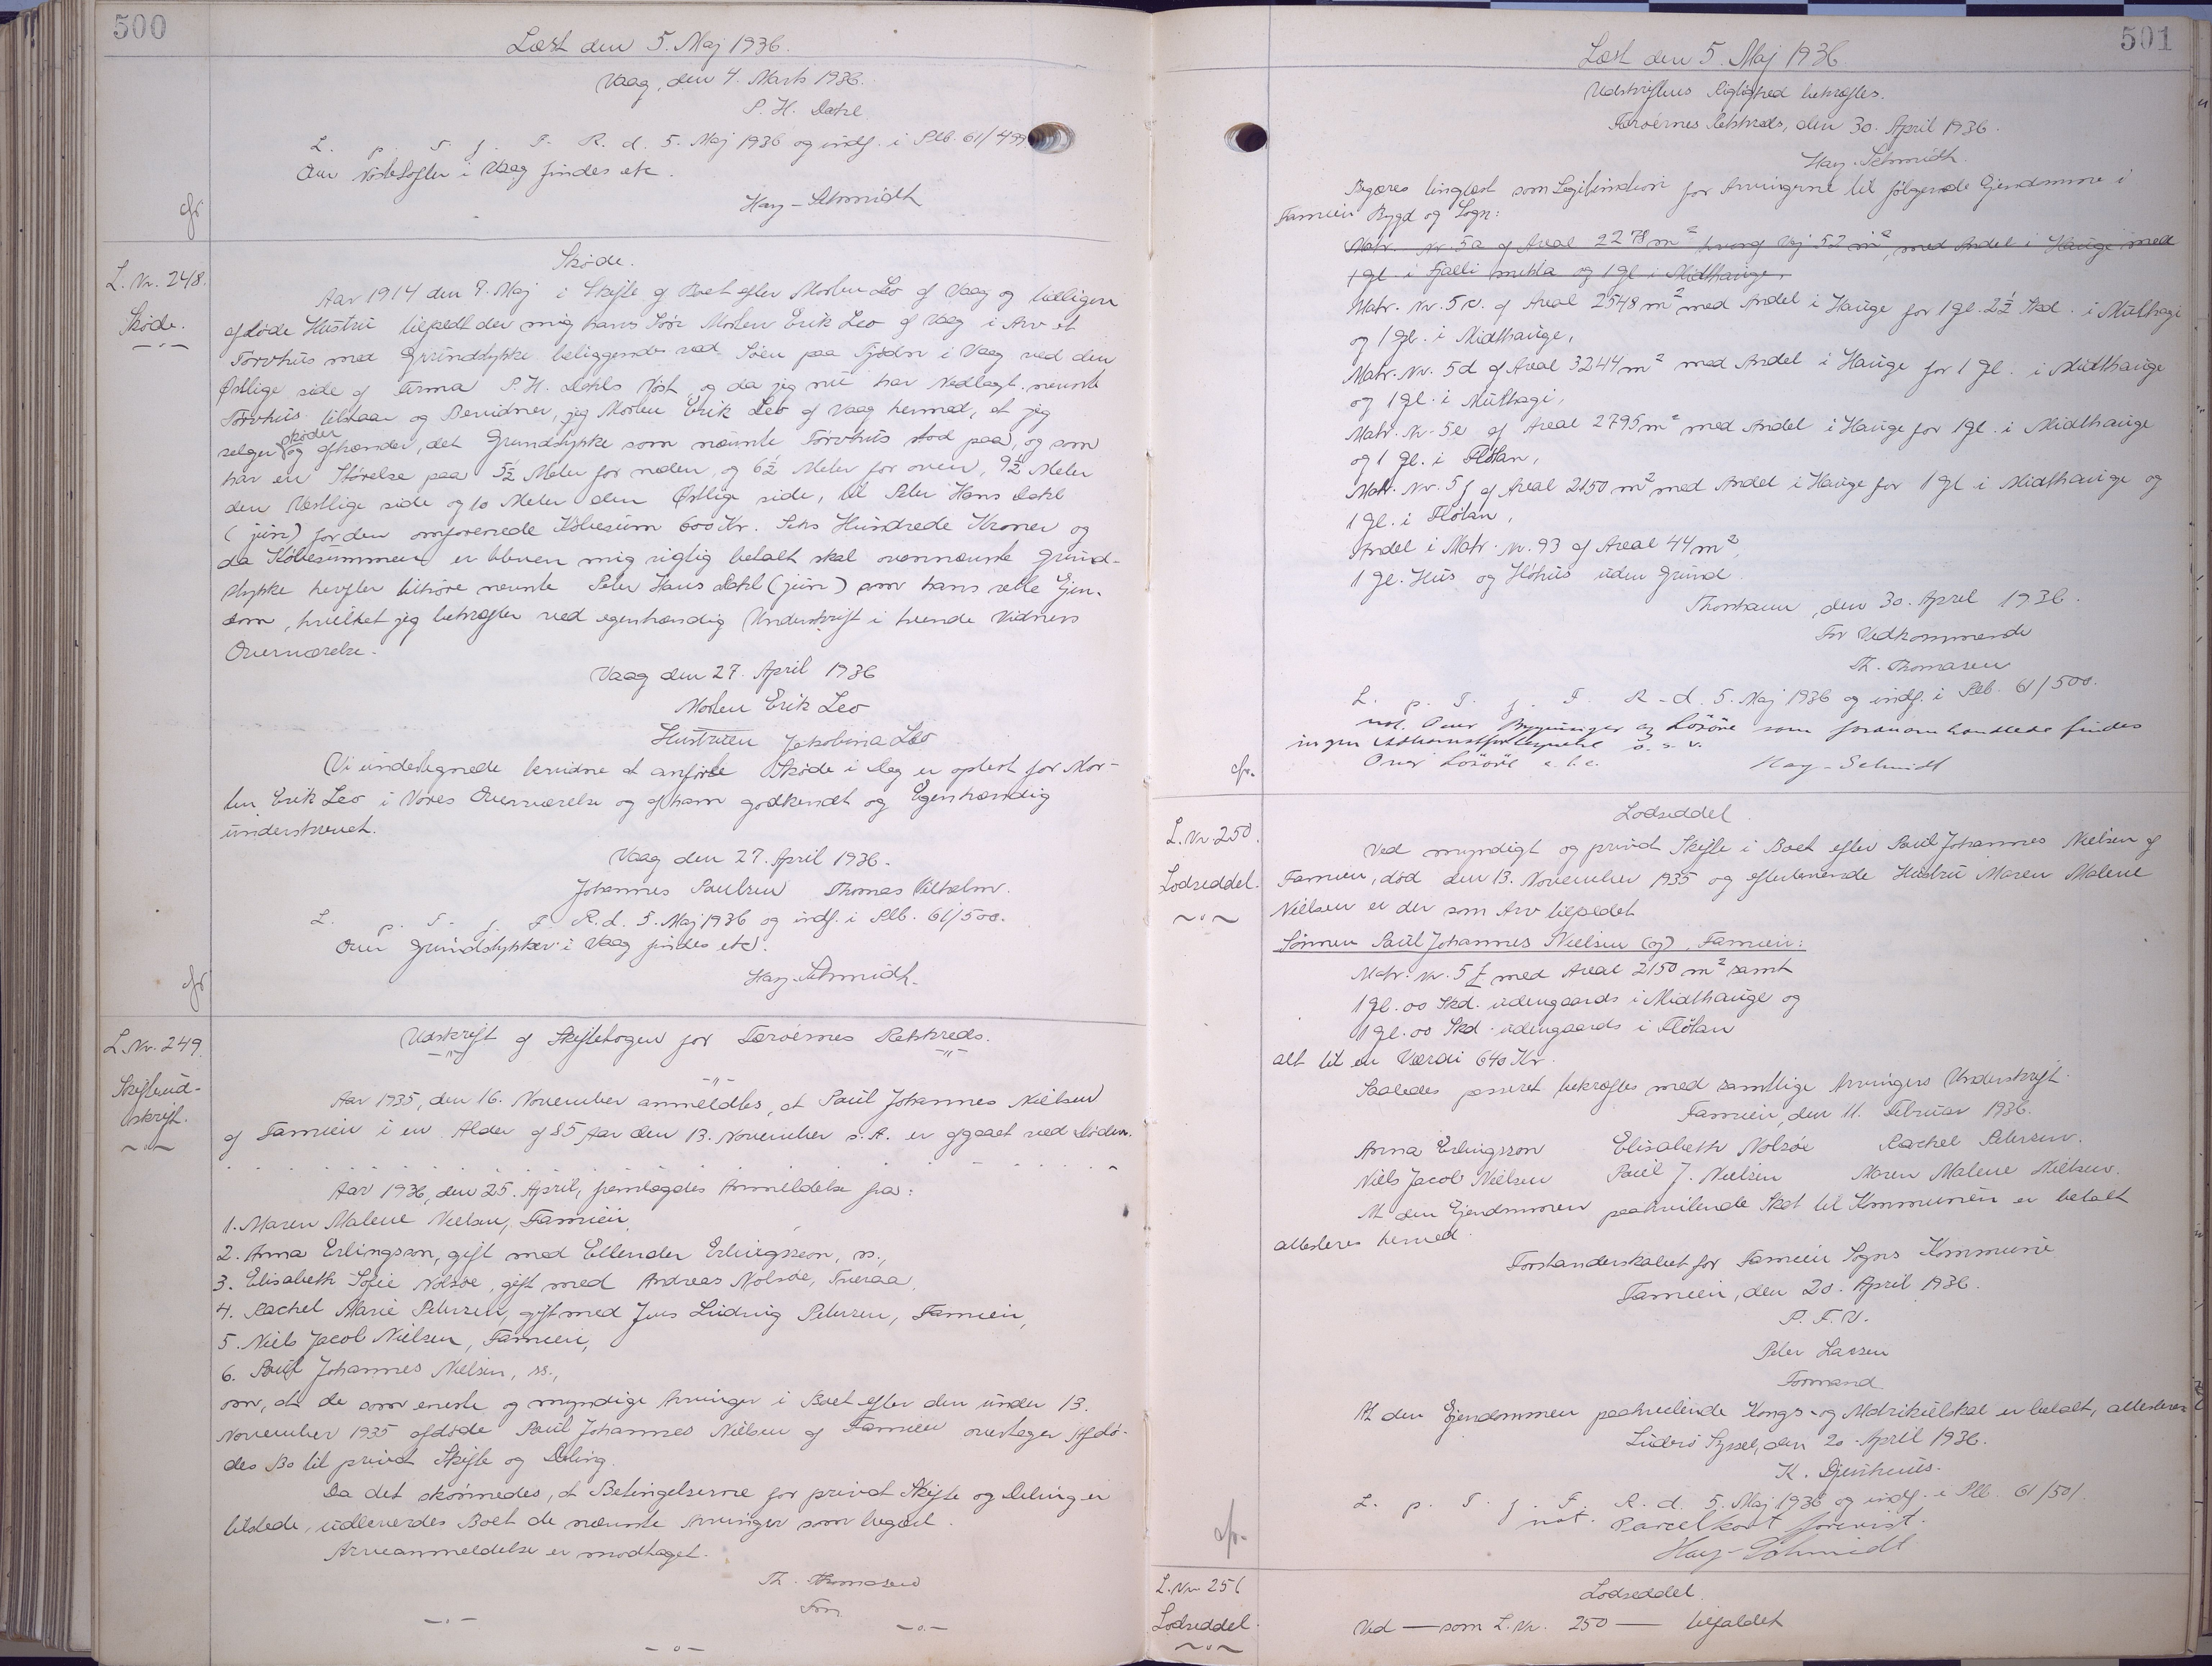 500
Læst den 5. Maj 1936.
Vaag, den 4. Marts 1936.
P. H. Dahl
L. p. T. f. F. R. d. 5. Maj 1936 og indf. i Plb. 61/499
Over Nöstetofter i Vaag findes etc.
Hay-Schmidth
cfr
L. Nr. 248.
Skøde.
Skøde.
Aar 1914 den 9. Maj i Skifte af Boet efter Morten Leo af Vaag og tidligere
afdøde Hustru tilfaldt der mig hans Sön Morten Erik Leo af Vaag i Arv et
Törvhus med Grundstykke beliggende ved Söen paa Fjödn i Vaag ved den
Østlige side af Firma P. H. Dahls Nöst og da jeg nu har Nedlagt nævnte
Törvhus tilstaar og Bevidner, jeg Morten Erik Leo af Vaag hermed, at jeg
sælger skøder og afhænder, det Grundstykke som nævnte Törvhus stod paa, og som
har en Störelse paa 5½ Meter for neden, og 6½ Meter for oven, 9½ Meter
den Vestlige side og 10 Meter den Østlige side, til Peter Hans Dahl
(jun) for den omforenede Köbesum 600 Kr. Seks Hundrede Kroner og
da Köbesummen er bleven mig rigtig betalt skal ovennævnte Grund-
stykke herefter tilhöre nævnte Peter Hans Dahl (jun) som hans rette Ejen-
dom, hvilket jeg bekræfter ved egenhændig Underskrift i tvende Vidners
Overværelse.
Vaag den 27. April 1936
Morten Erik Leo
Hustruen Jakobina Leo
Vi undertegnede bevidne at anförte Skøde i Dag er oplæst for Mor-
ten Erik Leo i Vores Overværelse og af ham godkendt og Egenhændig
underskrevet.
Vaag den 27. April 1936.
Johannes Poulsen Thomas Vilhelm.
L. p. T. f. F. R. d. 5. Maj 1936 og indf. i Plb. 61/500.
Over Grundstykker i Vaag findes etc.
Hay-Schmidth.
cfr
L. Nr. 249.
Skifteud-
skrift.
Udskrift af Skiftebogen for Færöernes Retskreds.
Aar 1935, den 16. November anmeldtes, at Poul Johannes Nielsen
af Famien i en Alder af 85 Aar den 13. November s. A. er afgaaet ved Döden.
Aar 1936, den 25. April, fremlagdes Anmeldelse fra:
1. Maren Malene Nielsen, Famien,
2. Anna Erlingsson, gift med Ellender Erlingsson, ss.,
3. Elisabeth Sofie Nolsøe, gift med Andreas Nolsøe, Tveraa,
4. Rachel Marie Petersen, gift med Jens Ludvig Petersen, Famien,
5. Niels Jacob Nielsen, Famien,
6. Poul Johannes Nielsen, ss.,
om, at de som eneste og myndige Arvinger i Boet efter den under 13.
November 1935 afdøde Poul Johannes Nielsen af Famien overtager Afdö-
des Bo til privat Skifte og Deling.
Da det skönnedes, at Betingelserne for privat Skifte og Deling er
tilstede, udleveredes Boet de nævnte Arvinger som begært.
Arveanmeldelse er modtaget.
Th. Thomasen
Fm
501
Læst den 5. Maj 1936.
Udskriftens Rigtighed bekræftes.
Færöernes Retskreds, den 30. April 1936.
Hay-Schmidth.
Begæres tinglæst som Legitimation for Arvingerne til følgende Ejendomme i
Famien Bygd og Sogn:
Matr. Nr. 5a af Areal 2278 m² hvoraf Vej 52 m², med Andel i Hauge med
1 gl. i Fjalli mebla og 1 gl. i Midthauge,
Matr. Nr. 5c. af Areal 2548 m² med Andel i Hauge for 1 gl. 2½ Skd. i Múlhagi
og 1 gl. i Midthauge,
Matr. Nr. 5d af Areal 3244 m² med Andel i Hauge for 1 gl. i Midthauge
og 1 gl. i Múlhagi,
Matr. Nr. 5e af Areal 2795 m² med Andel i Hauge for 1 gl. i Midthauge
og 1 gl. i Flötan,
Matr. Nr. 5f af Areal 2150 m² med Andel i Hauge for 1 gl i Midthauge og
1 gl. i Flötan,
Andel i Matr. Nr. 93 af Areal 44 m²,
1 gl. Hus og Höhus uden Grund
Thorshavn, den 30. April 1936.
For Vedkommende
Th. Thomasen
L. p. T. f. F. R. d. 5. Maj 1936 og indf. i Plb. 61/500.
not. Over Bygninger og Lösöre som foranom handlede findes
ingen Adkomstfortegnelse o. s. v.
Over Lösöre e. t. c.
Hay-Schmidt
cfr.
L. Nr 250.
Lodseddel.
Lodseddel
Ved myndigt og privat Skifte i Boet efter Poul Johannes Nielsen af
Famien, død den 13. November 1935 og efterlevende Hustru Maren Malene
Nielsen er der som Arv tilfaldet
Sönnen Poul Johannes Nielsen (og). Famien:
Matr. Nr. 5f med Areal 2150 m² samt
1 gl. 00 Skd. udengaards i Midthauge og
1 gl. 00 Skd. udengaards i Flötan
alt til en Værdi 640 Kr.
Saaledes passeret bekræftes med samtlige Arvingers Underskrift.
Famien, den 11. Februar 1936.
Anna Erlingsson Elisabeth Nolsøe Rachel Petersen.
Niels Jacob Nielsen Poul J. Nielsen Maren Malene Nielsen.
At den Ejendommen paahvilende Skat til Kommunen er betalt
attesteres herved.
Forstanderskabet for Famien Sogns Kommune
Famien, den 20. April 1936.
P. F. V.
Peter Larsen
Formand
At den Ejendommen paahvilende Kongs- og Matrikulskat er betalt, attesteres
Suderö Syssel, den 20. April 1936.
K. Djurhuus.
L. p. T. f. F. R. d. 5. Maj 1936 og indf. i Plb. 61/501.
not. Parcelkort forevist.
Hay-Schmidt
cfr.
L. Nr. 251
Lodseddel.
Lodseddel.
Ved — som L. Nr. 250 — tilfaldet